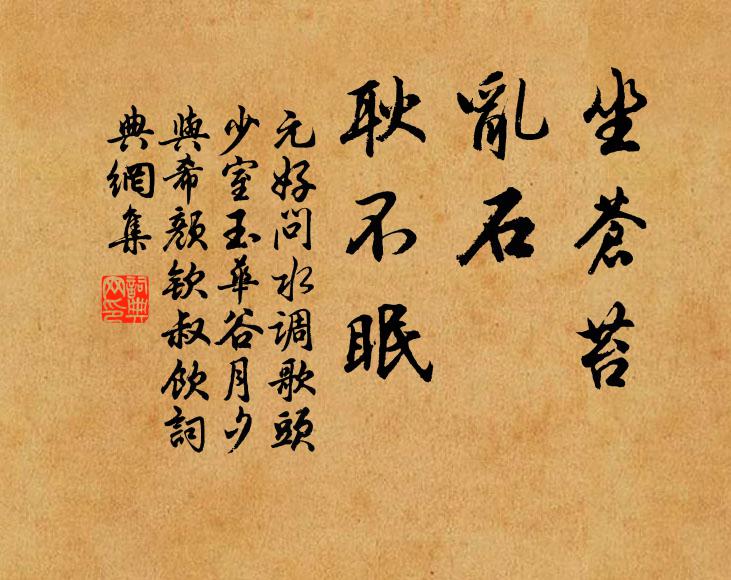 坐蒼苔
亂石
耿不眠
元好问水调歌頭
少室玉華谷月夕
與希顏欽叔飲詞
典網集
詞典
网印